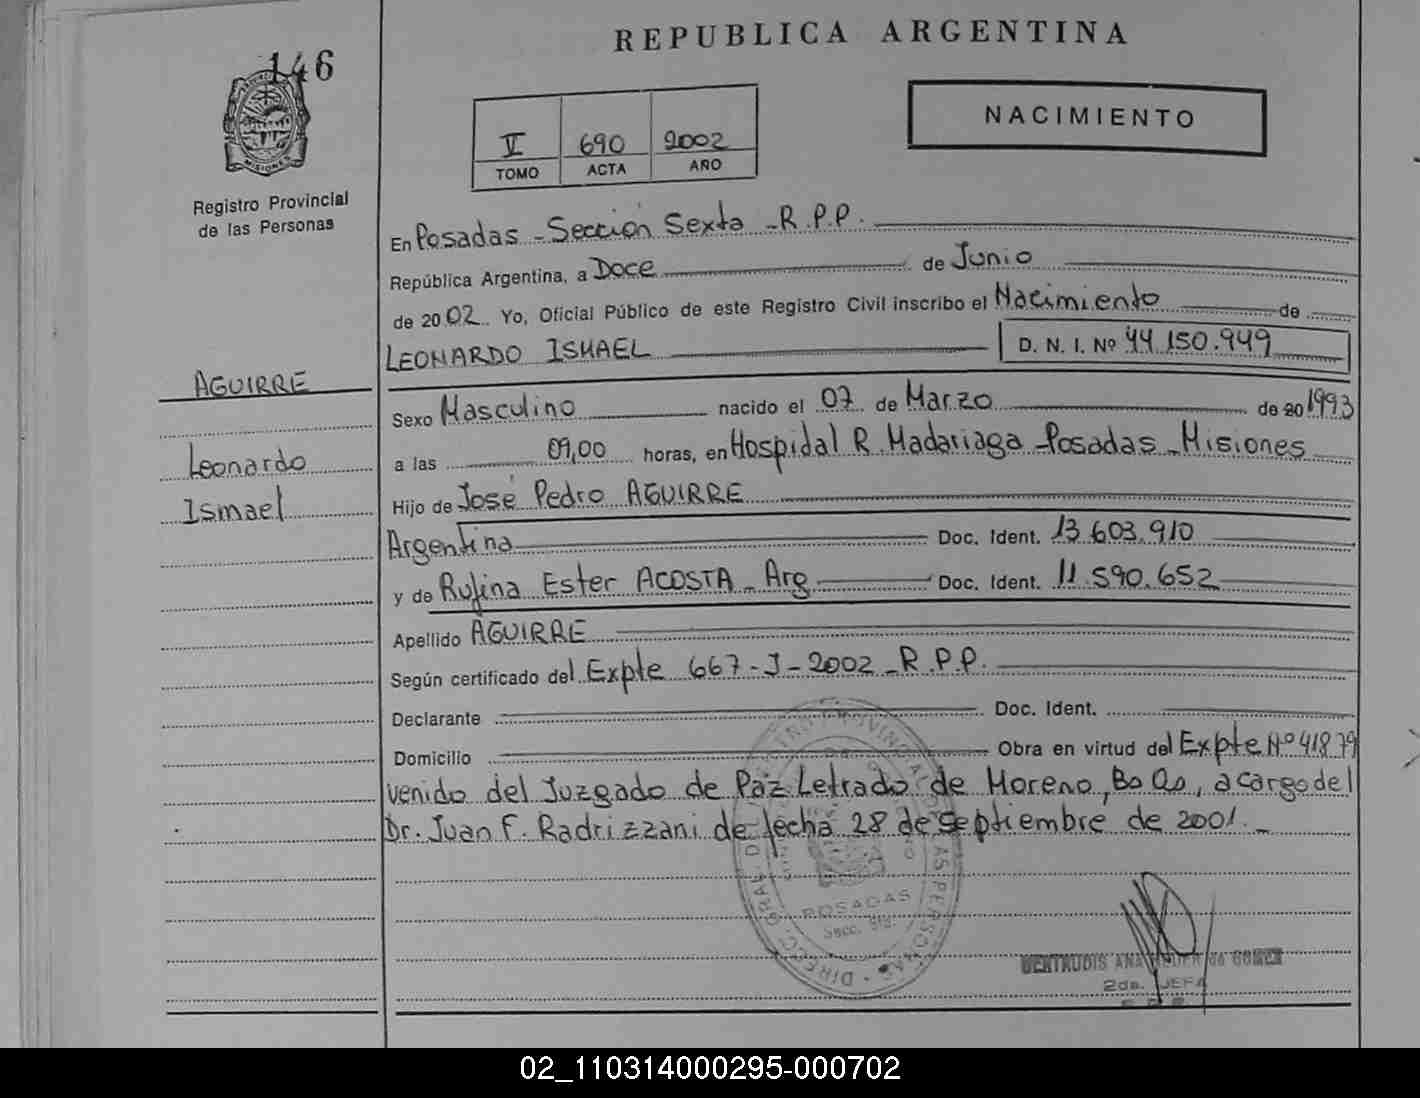 REPUBLICA ARGENTINA
146
MISIONES
Registro Provincial
de las Personas
NACIMIENTO
V 690 2002
TOMO ACTA AÑO
En Posadas - Sección Sexta - R.P.P.
República Argentina, a Doce de Junio
de 2002 Yo, Oficial Público de este Registro Civil inscribo el Nacimiento de
LEONARDO ISMAEL D. N. I. Nº 44.150.949
AGUIRRE
Leonardo
Ismael
Sexo Masculino nacido el 07 de Marzo de 20 1993
a las 09,00 horas, en Hospidal R. Madariaga - Posadas - Misiones
Hijo de José Pedro AGUIRRE
Argentina Doc. Ident. 13.603.910
y de Rufina Ester ACOSTA - Arg Doc. Ident. 11.590.652
Apellido AGUIRRE
Según certificado del Expte 667-J-2002 - R.P.P.
Declarante Doc. Ident.
Domicilio Obra en virtud del Expte Nº 41879
venido del Juzgado de Paz Letrado de Moreno, Bs As, a cargo del
Dr. Juan F. Radrizzani de fecha 28 de septiembre de 2001. -
POSADAS
Secc. 6ta.
GERTRUDIS ANA de GOMEZ
2da. JEFA
02_110314000295-000702